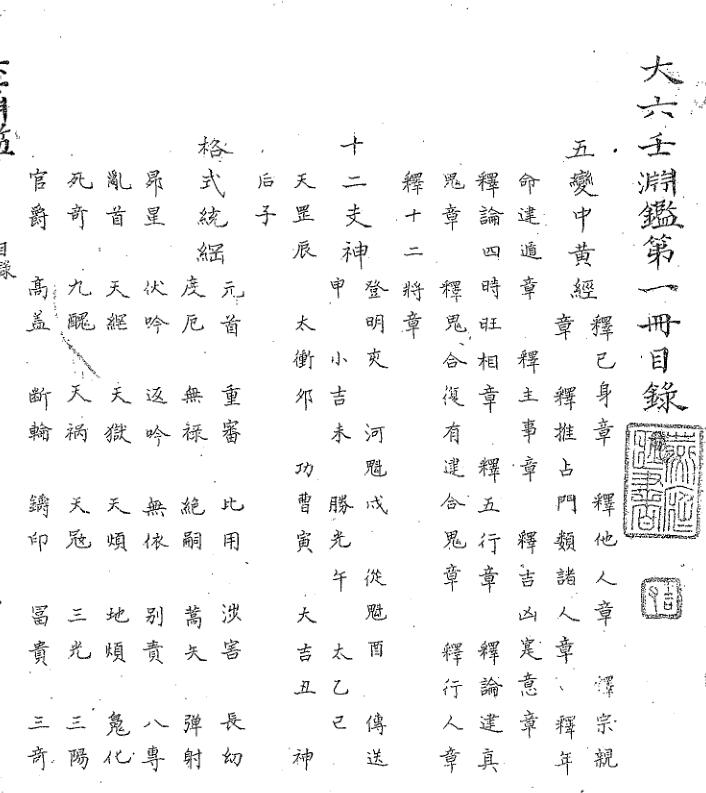 大六壬淵鑑第一冊目錄
五變中黃經
釋己身章 釋他人章 釋宗親
章 釋推占門類諸人章、釋年
命建遁章 釋主事章 釋吉凶寔意章
釋論四時旺相章 釋五行章 釋論建真
鬼章 釋鬼合復有建合鬼章 釋行人章
釋十二將章
十二支神
登明亥 河魁戌 從魁酉 傳送
申 小吉未 勝光午 太乙巳
天罡辰 太衝卯 功曹寅 大吉丑 神
后子
格式統綱
元首 重審 比用 涉害 長幼
度厄 無祿 絕嗣 蒿矢 彈射
昴星 伏吟 返吟 無依 別責 八專
亂首 天網 天獄 天煩 地煩 鬼化
死奇 九醜 天禍 天寇 三光 三陽
官爵 高蓋 斷輪 鑄印 冨貴 三奇
目錄